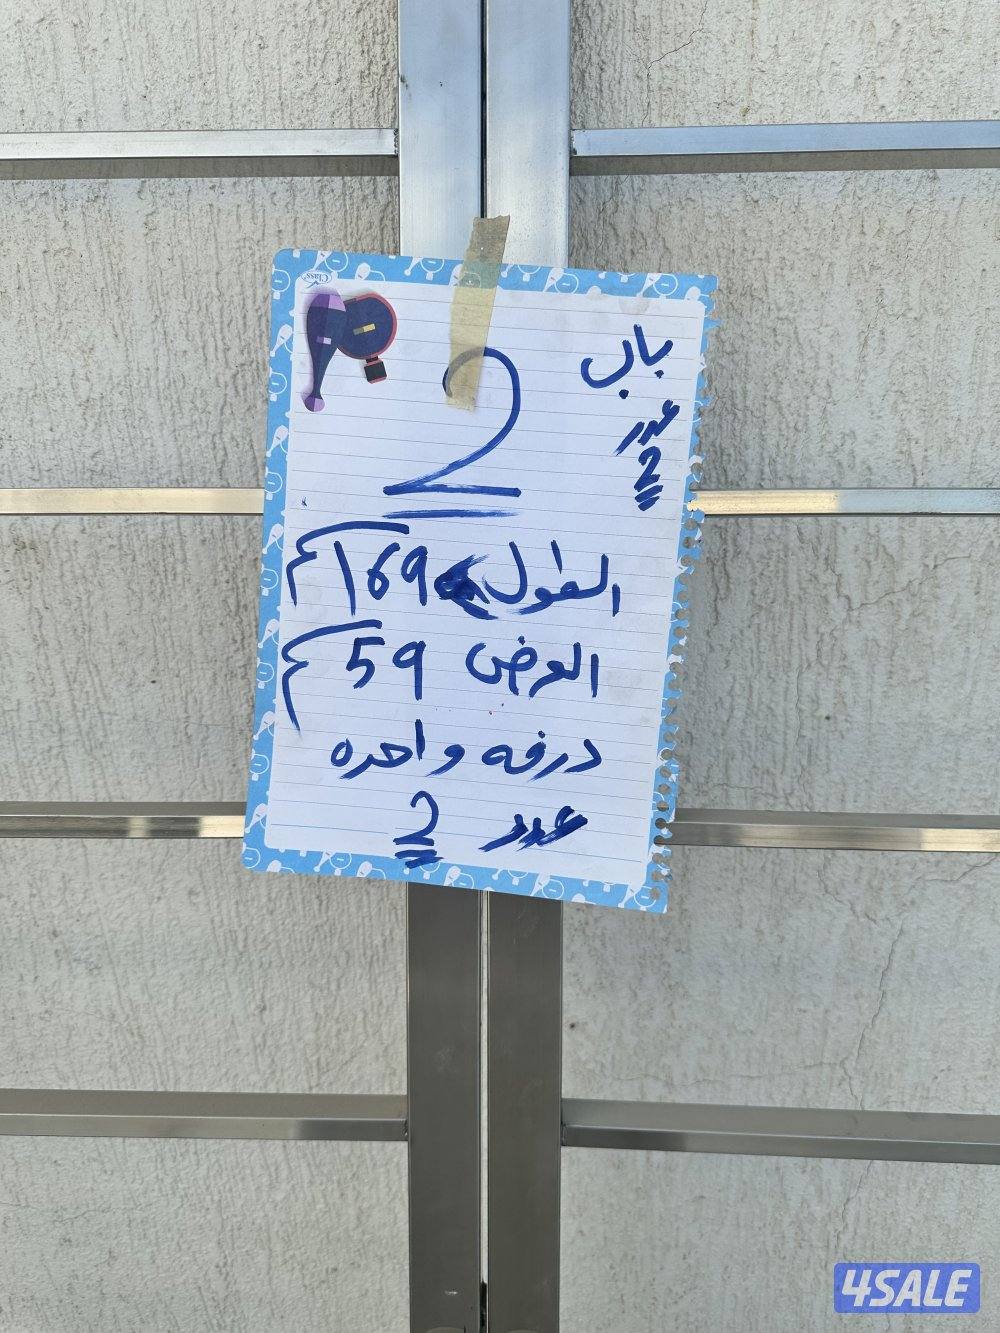 Class
باب
عدد
2
2
الطول 169 سم
العرض 59 سم
درفه واحده
عدد 2
4SALE